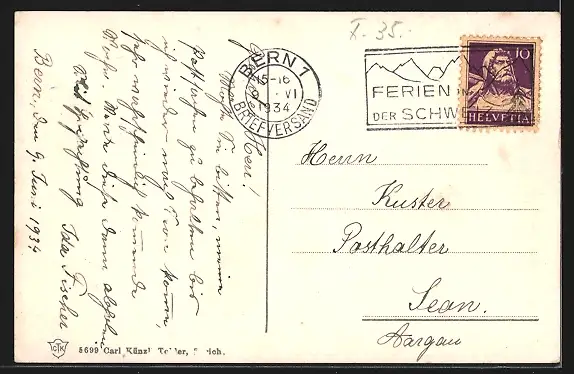 X. 35.
BERN 1
15-16
VI
1934
BRIEFVERSAND
FERIEN IN
DER SCHWE
10
HELVETIA
Herrn
Kuster
Posthalter
Seon.
Aargau
Herr!
Möchte Sie bitten, meine
Postsachen zu behalten bis
ich wieder nach Seon komme
sehr wahrscheinlich kommende
Woche. Werde diese dann abholen
Mit Hochachtung Ida Fischer
Bern, den 9. Juni 1934
CTK
5699 Carl Künzli